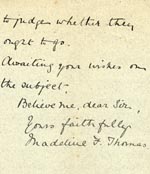 to judge whether they
ought to go.
Awaiting your wishes on
the subject,
Believe me, dear Sir,
Yours faithfully
Madeline F. Thomas